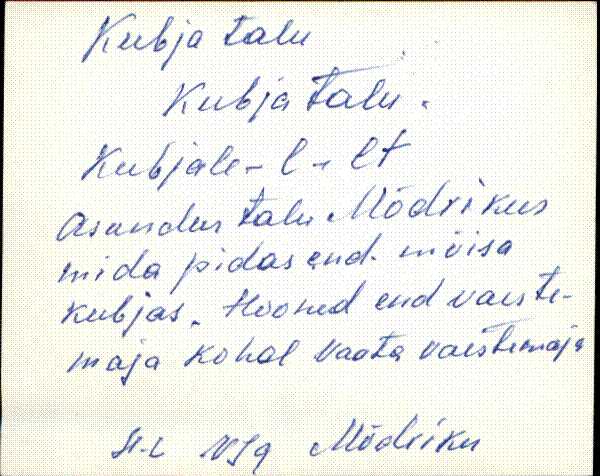 Kubja talu
Kubja talu.
Kubjale - l - lt
Asundus talu Mõdrikus
mida pidas end. mõisa
kubjas. Hooned end vaeste-
maja kohal Vaata vaestemaja
Mõdriku